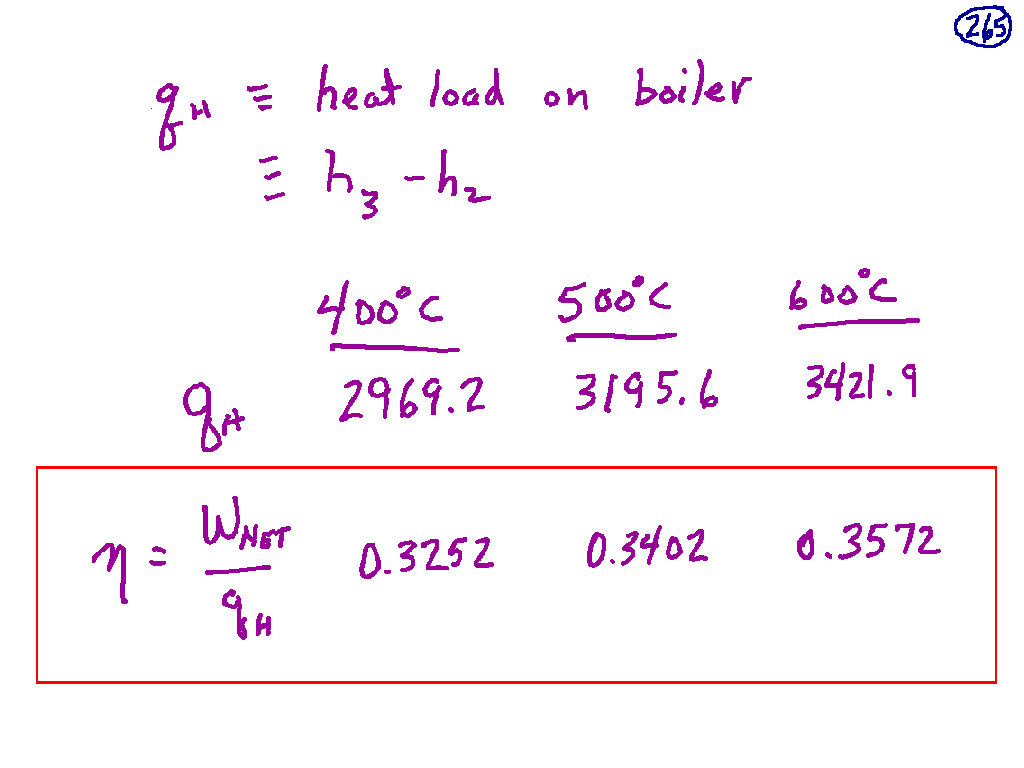 265
qH ≡ heat load on boiler
≡ h3 - h2
400°C 500°C 600°C
qH 2969.2 3195.6 3421.9
η = WNET / qH 0.3252 0.3402 0.3572